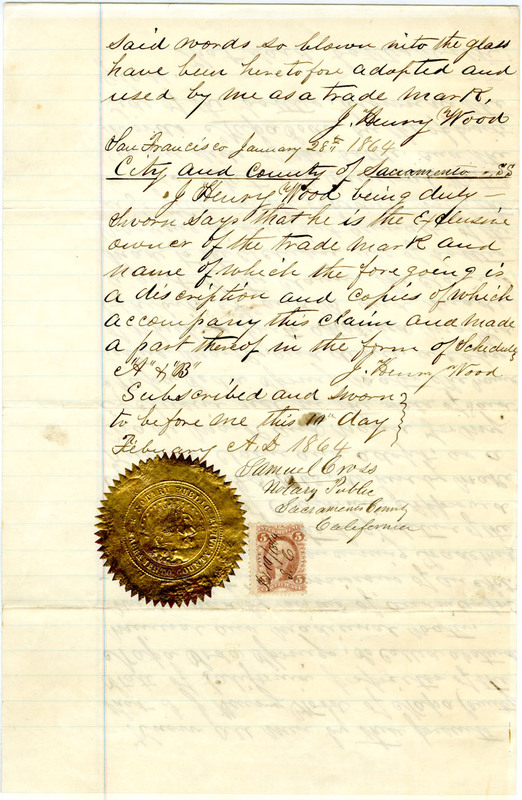 said words so blown into the glass
have been heretofore adopted and
used by me as a trade mark.
J. Henry Wood
San Francisco January 28th 1864
City and County of Sacramento SS
J Henry Wood being duly
sworn says that he is the exclusive
owner of the trade mark and
name of which the foregoing is
a discription and copies of which
accompany this claim and made
a part thereof in the form of Schedule
"A" & "B"
J. Henry Wood
Subscribed and sworn
to before me this day
February A.D 1864
Samuel Cross
Notary Public
Sacramento County
California
5 5